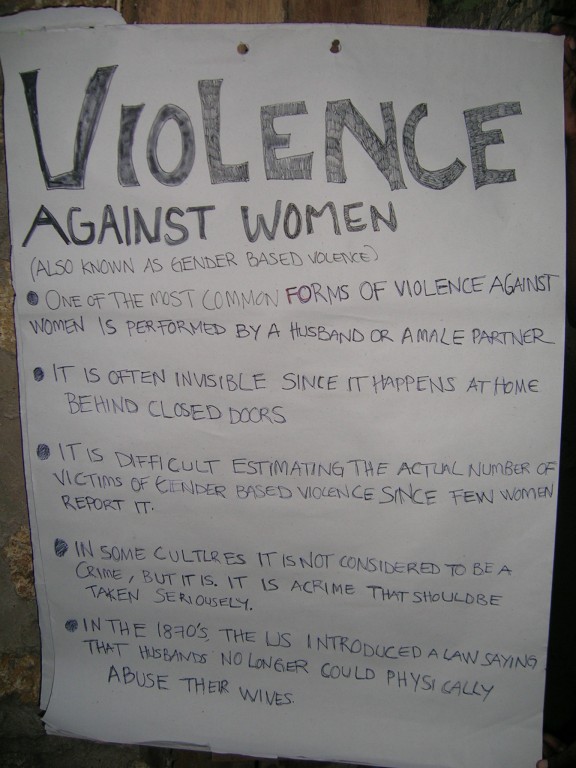 VIOLENCE
AGAINST WOMEN
(ALSO KNOWN AS GENDER BASED VOLENCE)
• ONE OF THE MOST COMMON FORMS OF VIOLENCE AGAINST
WOMEN IS PERFORMED BY A HUSBAND OR A MALE PARTNER
• IT IS OFTEN INVISIBLE SINCE IT HAPPENS AT HOME
BEHIND CLOSED DOORS
• IT IS DIFFICULT ESTIMATING THE ACTUAL NUMBER OF
VICTIMS OF GENDER BASED VIOLENCE SINCE FEW WOMEN
REPORT IT.
• IN SOME CULTURES IT IS NOT CONSIDERED TO BE A
CRIME, BUT IT IS. IT IS A CRIME THAT SHOULD BE
TAKEN SERIOUSELY.
• IN THE 1870'S, THE US INTRODUCED A LAW SAYING
THAT HUSBANDS NO LONGER COULD PHYSICALLY
ABUSE THEIR WIVES.